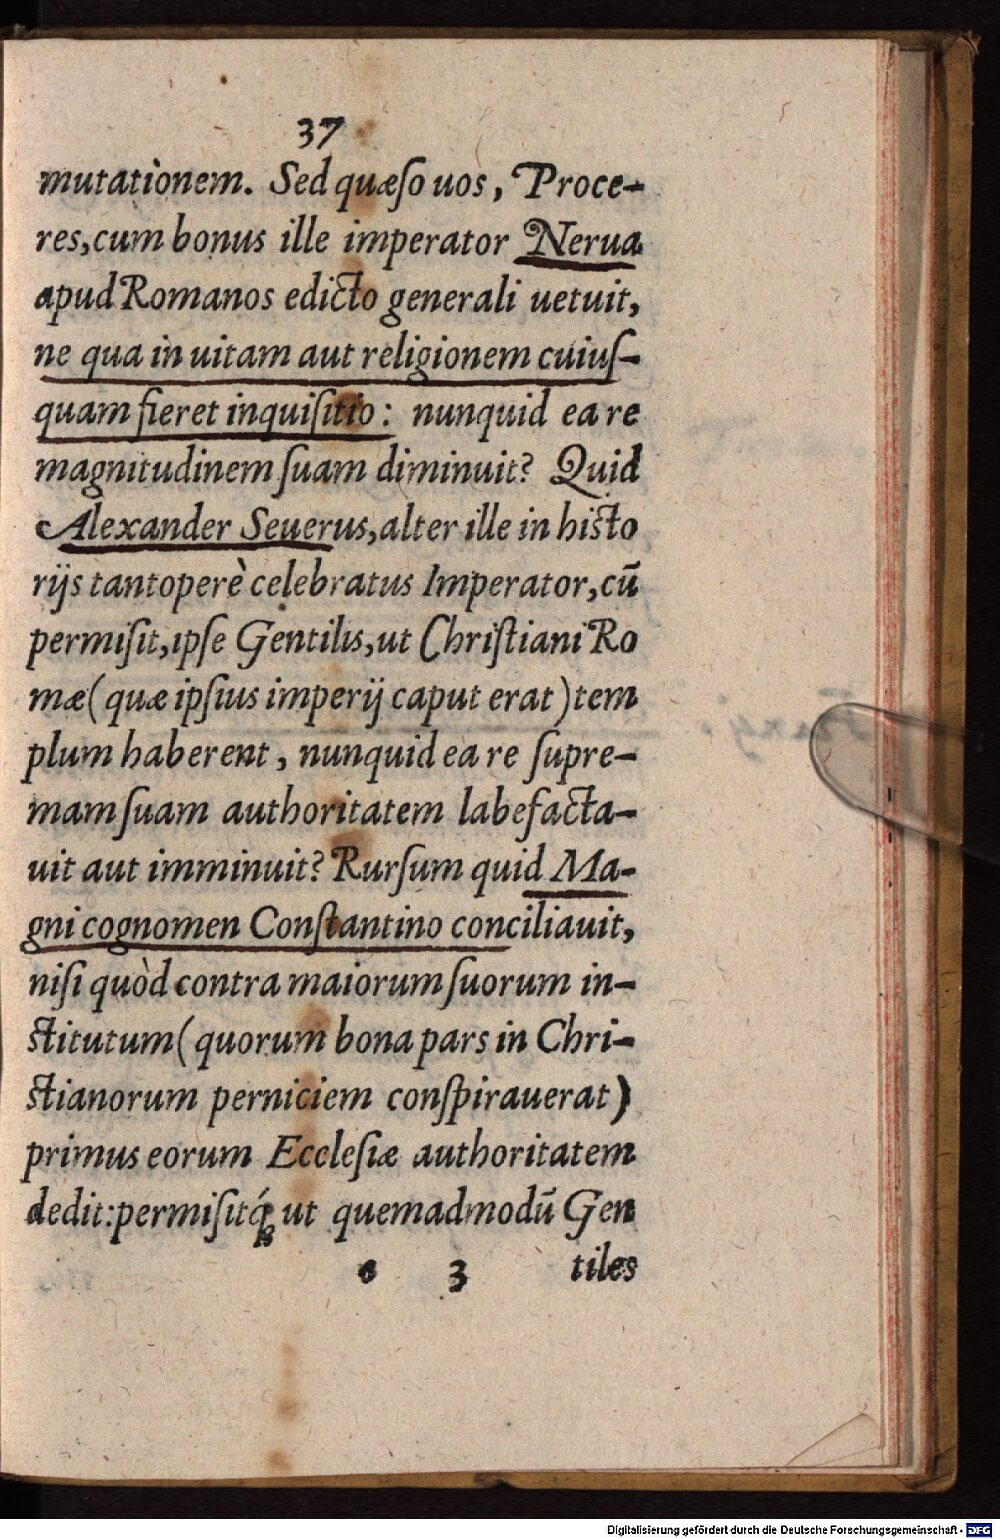 37
mutationem. Sed quæſo uos, Proce-
res, cum bonus ille imperator Nerua
apud Romanos edicto generali uetuit,
ne qua in uitam aut religionem cuiuſ-
quam fieret inquiſitio: nunquid ea re
magnitudinem ſuam diminuit? Quid
Alexander Seuerus, alter ille in histo
rijs tantoperè celebratus Imperator, cū
permiſit, ipſe Gentilis, ut Chriſtiani Ro
mæ (quæ ipſius imperij caput erat) tem
plum haberent, nunquid ea re ſupre-
mam ſuam authoritatem labefacta-
uit aut imminuit? Rurſum quid Ma-
gni cognomen Conſtantino conciliauit,
niſi quòd contra maiorum ſuorum in-
ſtitutum (quorum bona pars in Chri-
ſtianorum perniciem conſpirauerat)
primus eorum Eccleſiæ authoritatem
dedit: permiſitq́; ut quemadmodū Gen
e 3 tiles
Digitalisierung gefördert durch die Deutsche Forschungsgemeinschaft - DFG